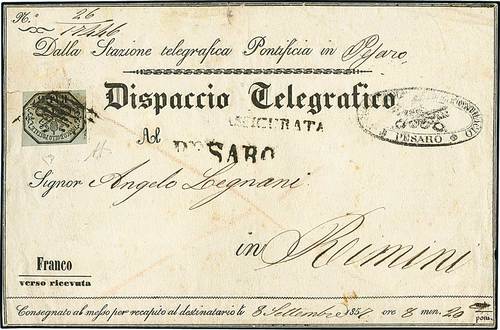 N.° 26
Dalla Stazione telegrafica Pontificia in Pesaro
Dispaccio Telegrafico
ASSICURATA
Al
PESARO
PESARO
Signor Angelo Legnani
in Rimini
Franco
verso ricevuta
Consegnato al messo per recapito al destinatario le 8 Settembre 185 ore 8 min. 20
pom.